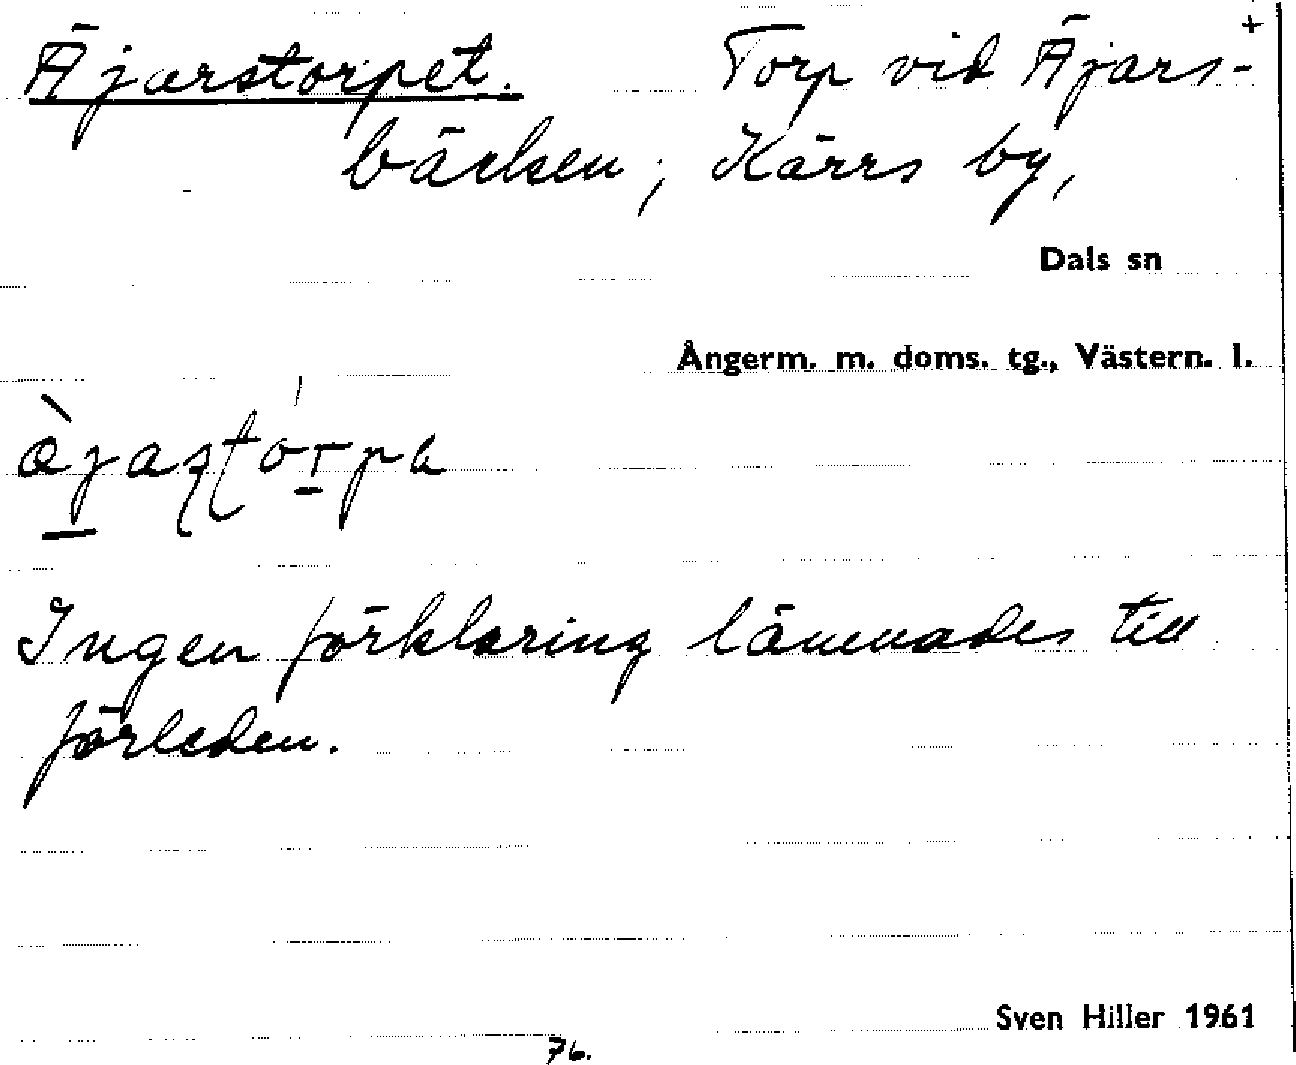 Äjarstorpet. Torp vid Äjars- +
bäcken; Kärrs by,
Dals sn
Ångerm. m. doms. tg., Västern. l.
Ingen förklaring lämnades till
förleden.
Sven Hiller 1961
76.